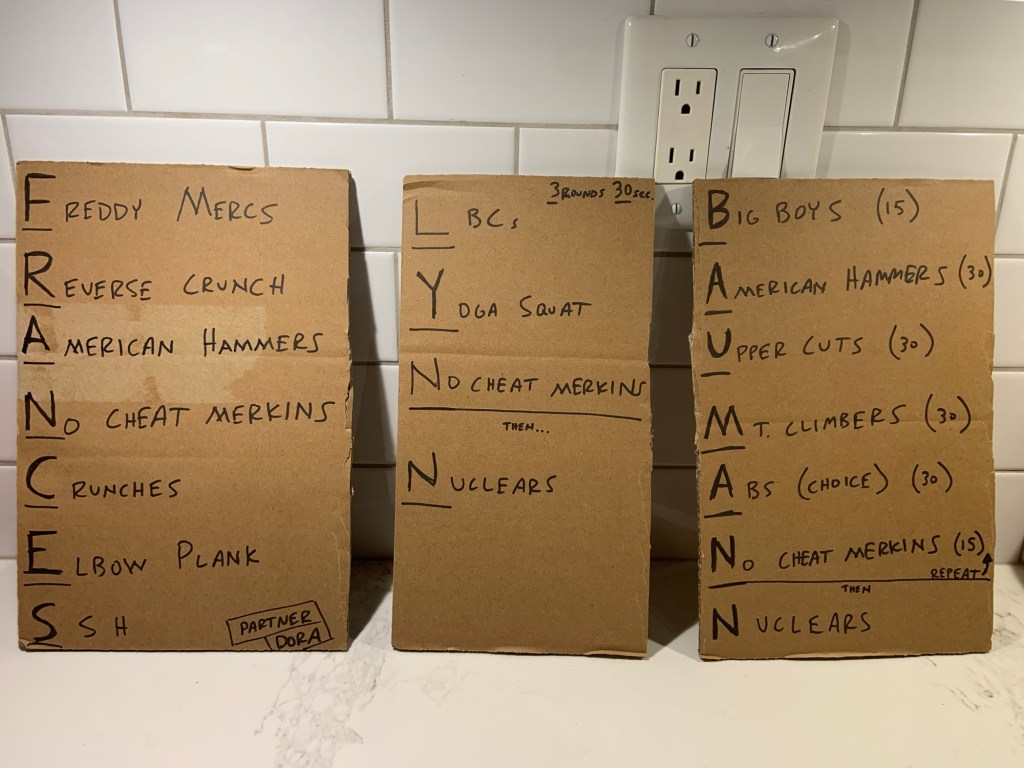 FREDDY MERCS
REVERSE CRUNCH
AMERICAN HAMMERS
NO CHEAT MERKINS
CRUNCHES
ELBOW PLANK
SSH
PARTNER
DORA
3 ROUNDS 30 SEC.
LBCs
YOGA SQUAT
NO CHEAT MERKINS
THEN...
NUCLEARS
BIG BOYS (15)
AMERICAN HAMMERS (30)
UPPER CUTS (30)
MT. CLIMBERS (30)
ABS (CHOICE) (30)
NO CHEAT MERKINS (15)
REPEAT
THEN
NUCLEARS